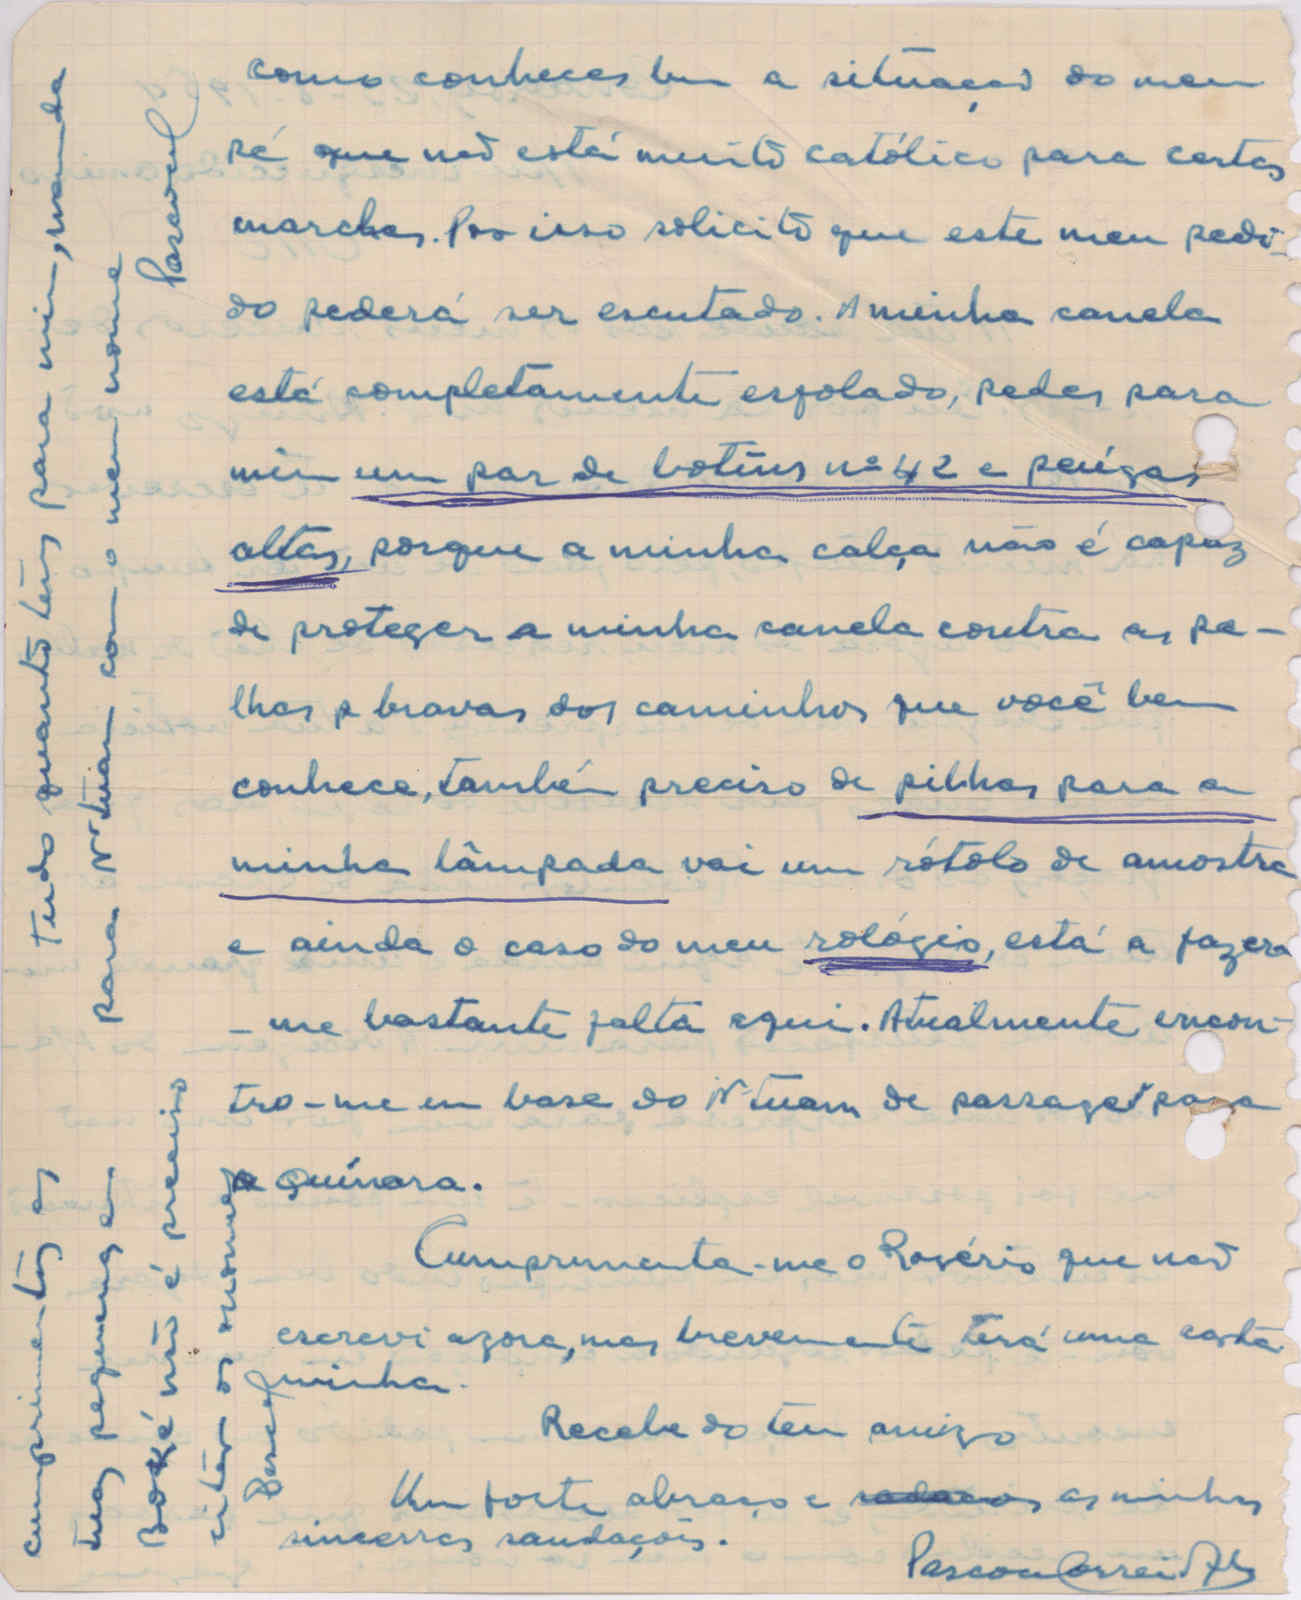 como conheces bem a situaçaõ do meu
pé que naõ está muito católico para certas
marchas. Por isso solicito que este meu pedi-
do pederá ser escutado. A minha canela
está completamente esfolado, pedes para
mim um par de botins nº 42 e peúgas
altas, porque a minha calça não é capaz
de proteger a minha canela contra as pa-
lhas bravas dos caminhos que você bem
conhece, também preciso de pilhas para a
minha lâmpada vai um rótolo de amostra
e ainda o caso do meu rológio, está a fazer
-me bastante falta aqui. Atualmente encon-
tro-me em base do N'Tuam de passagem para
a Quínara.
Cumprimenta-me o Rogério que naõ
escrevi agora, mas brevemente terá uma carta
minha.
Recebe do teu amigo
Um forte abraço e as minhas
sinceras saudações.
Pascoal Correia
Tudo quanto têns para mim, manda
para N'tuam com o meu nome
Pascoal
cumprimentos as
tuas pequenas em
Boké não é preciso
citar os nomes
Pascoal